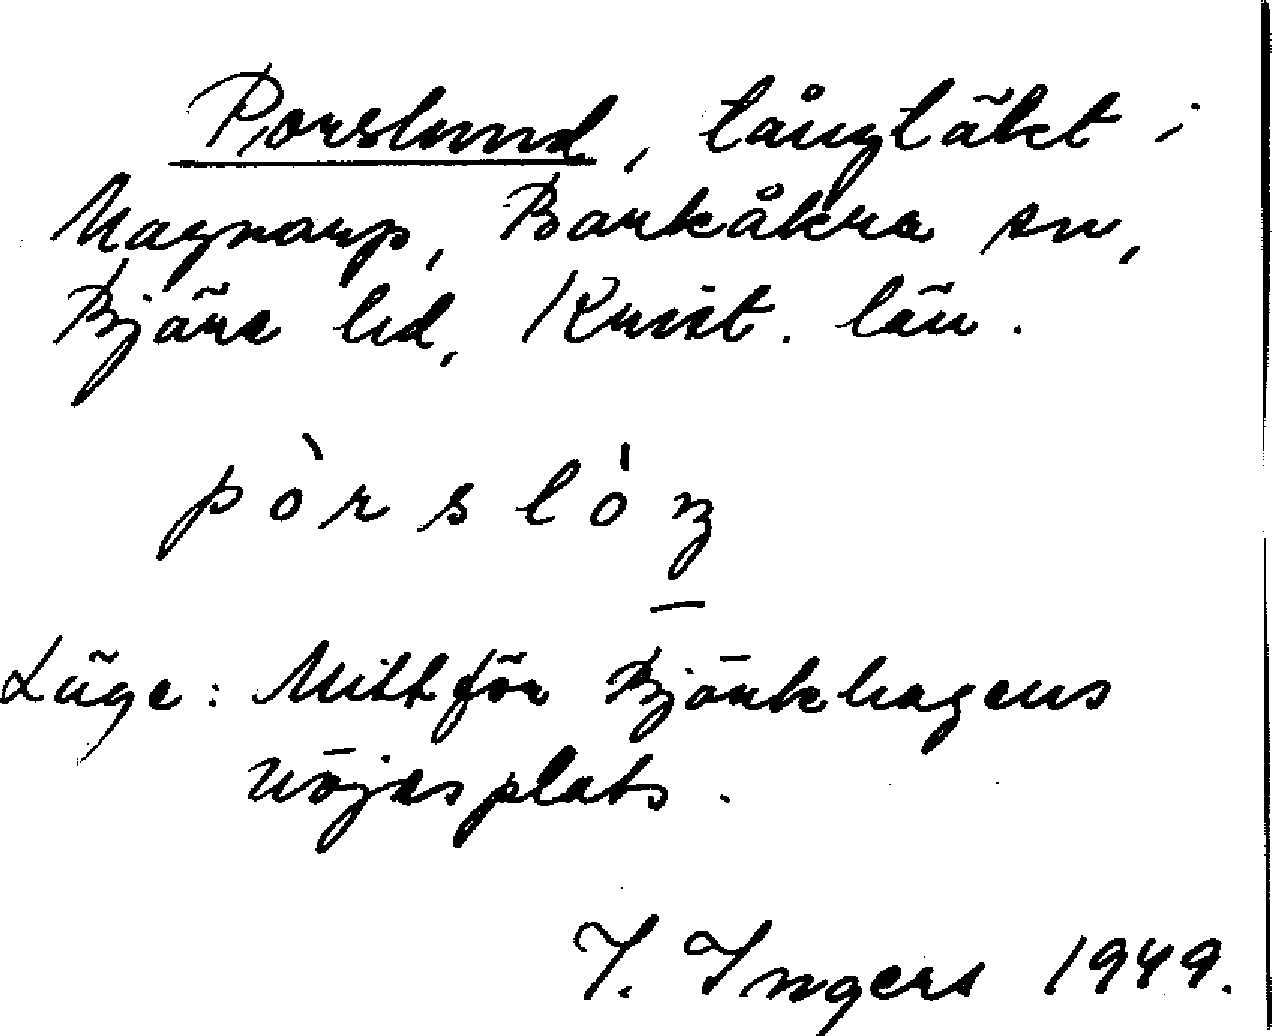 Porslund, långtäkt i
Magnarp, Barkåkra sn,
Bjäre hd, Krist. län.
pòrslón
Läge: Mitt för Björkhagens
nöjesplats.
I. Ingers 1949.